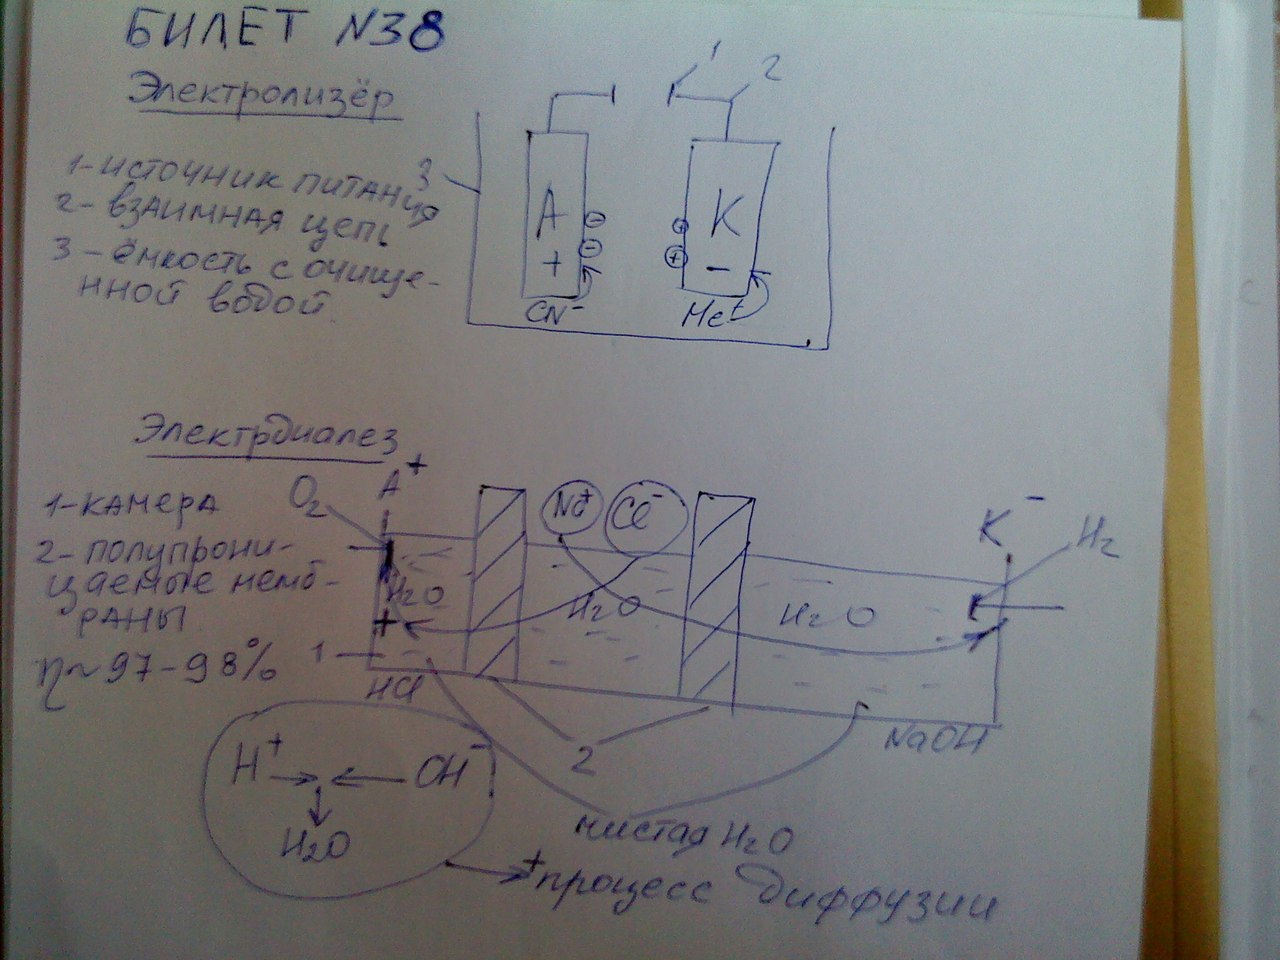 БИЛЕТ N38
Электролизёр
1 2
1- источник питания
2- взаимная цепь
3 - ёмкость с очище-
нной водой
3
A K
+ -
CN⁻ Me⁺
Электрдиалез
1-камера
2- полупрони-
цаемые мемб-
раны
η~97-98%
O₂ A⁺ Na⁺ Cl⁻ K⁻ H₂
H₂O H₂O H₂O
+
1
HCl NaOH
2
H⁺ → ← OH⁻
↓
H₂O
чистая H₂O
→ + процесс диффузии